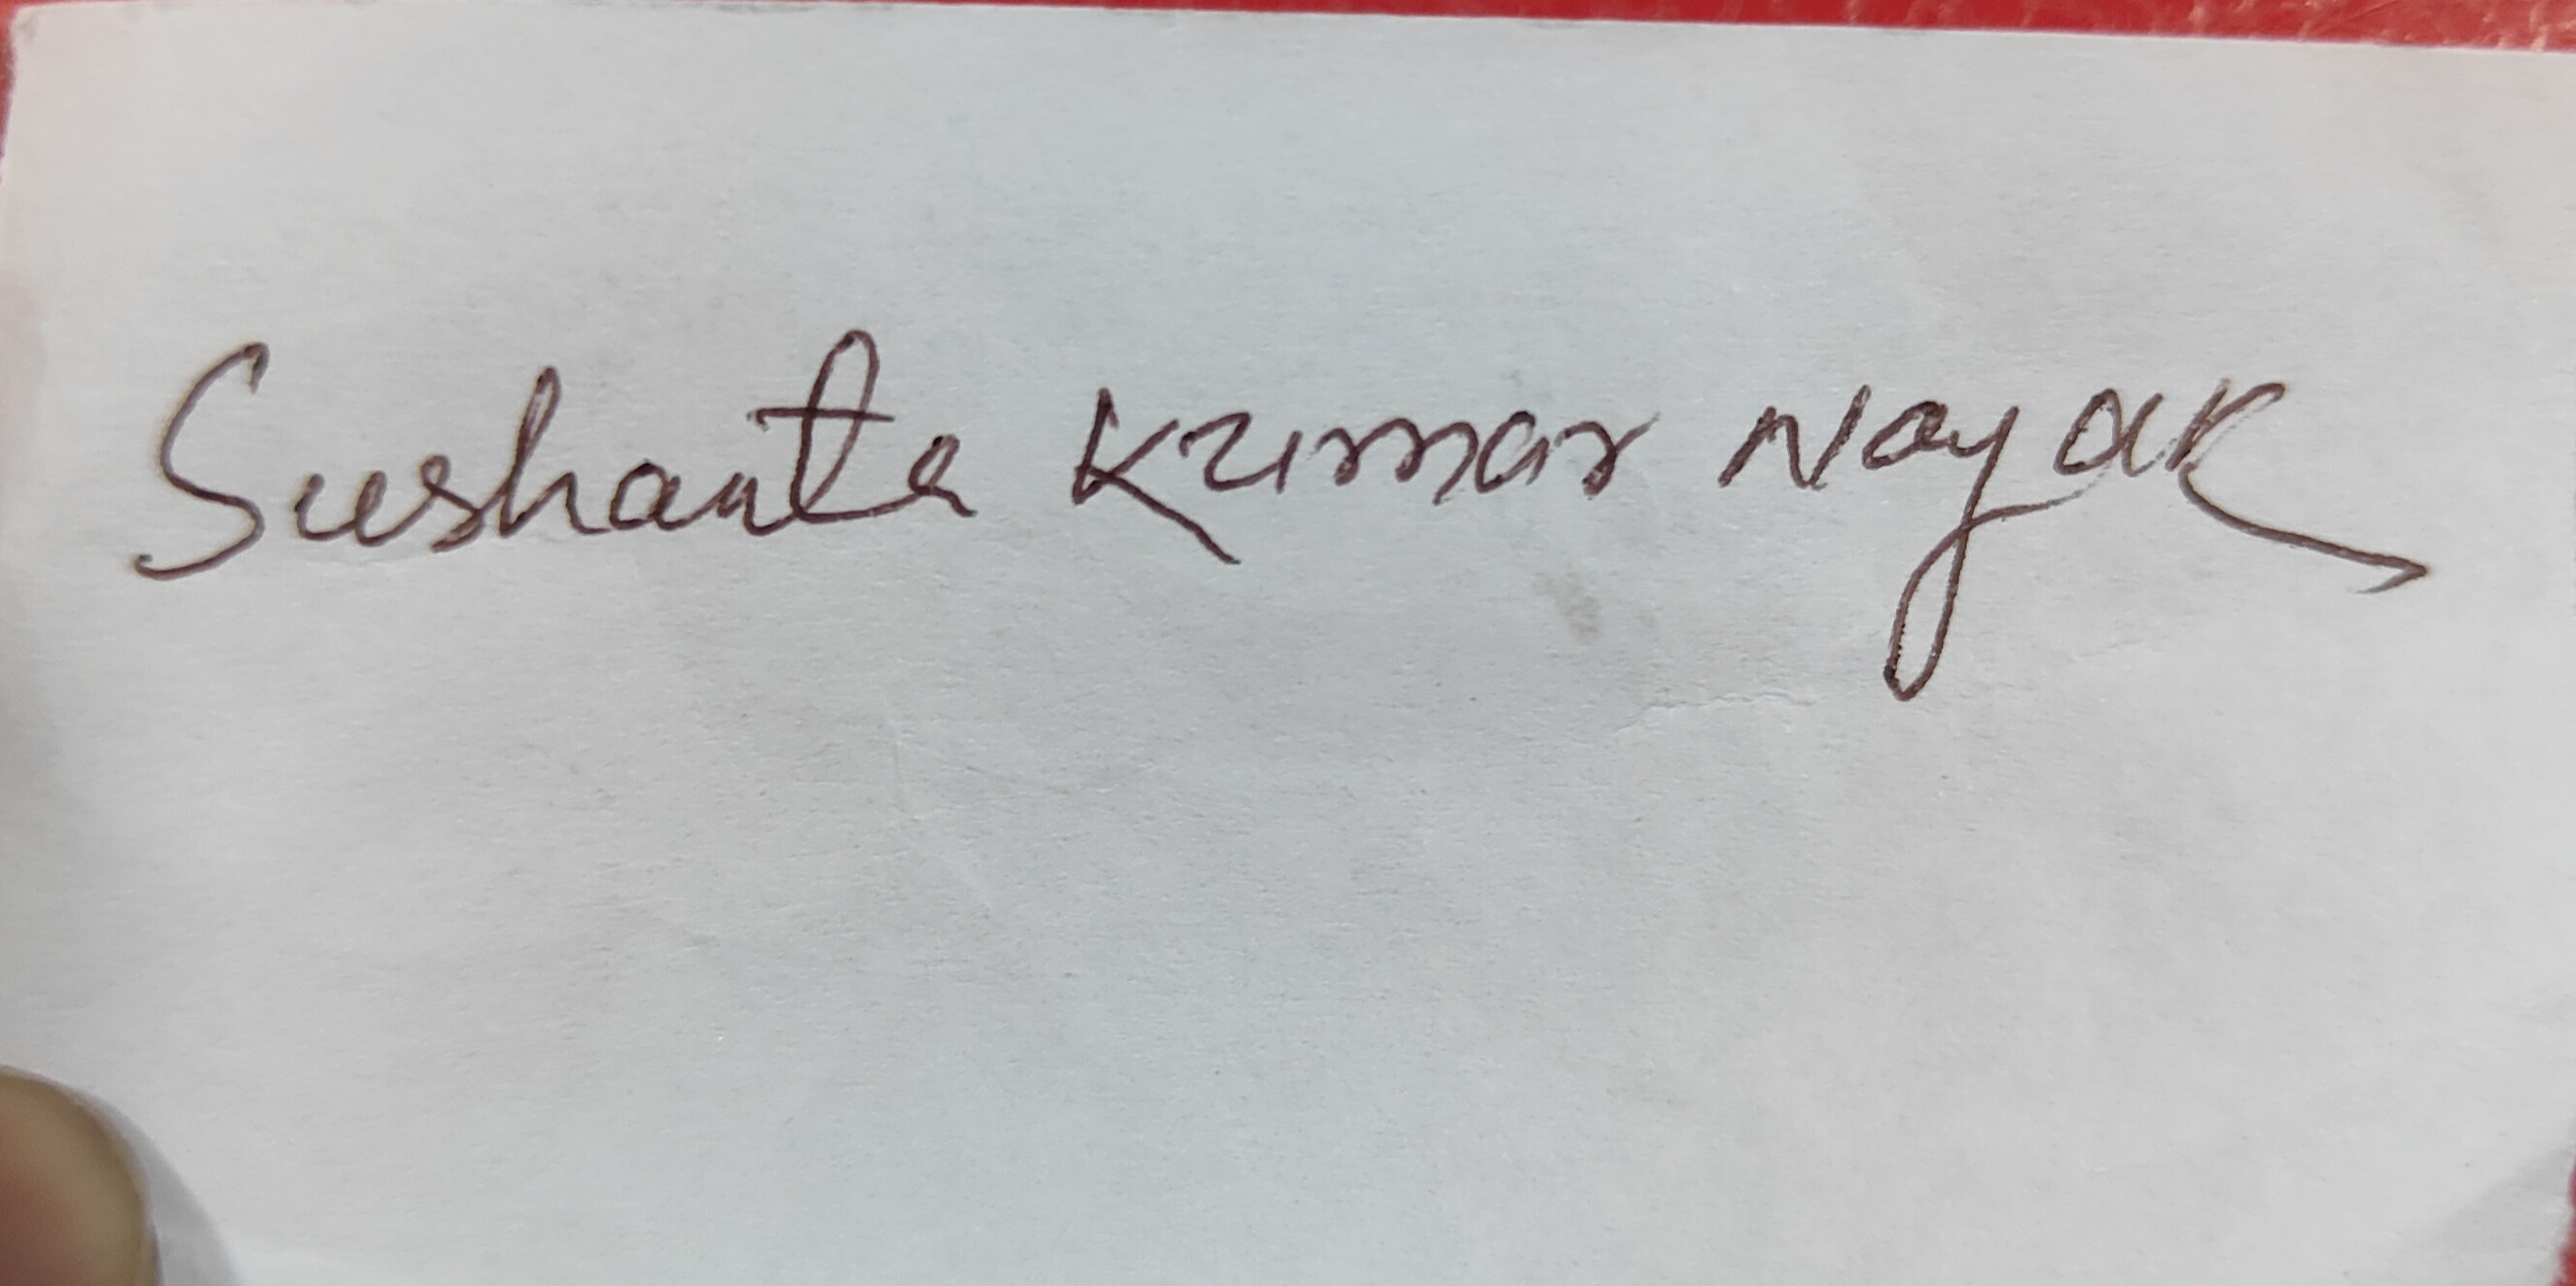 Sushanta Kumar Nayak